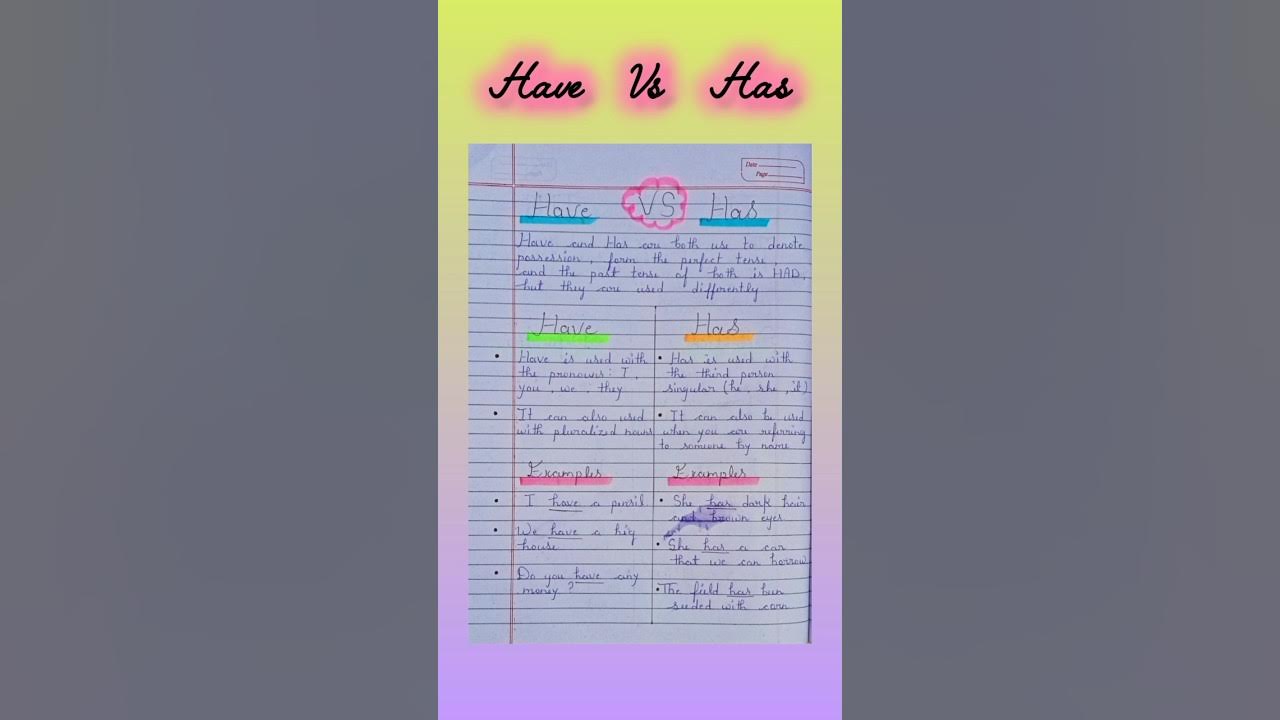 Have Vs Has
Date
Page
Have VS Has
Have and Has are both use to denote
possession, form the perfect tense,
and the past tense of both is HAD,
but they are used differently
Have
• Have is used with
the pronouns: I,
you, we, they
• It can also used
with pluralized nouns
Examples
• I have a pensil
• We have a big
house
• Do you have any
money?
Has
• Has is used with
the third person
singular (he, she, it)
• It can also be used
when you are referring
to someone by name
Examples
• She has dark hair
and brown eyes
• She has a car
that we can borrow
• The field has been
seeded with corn